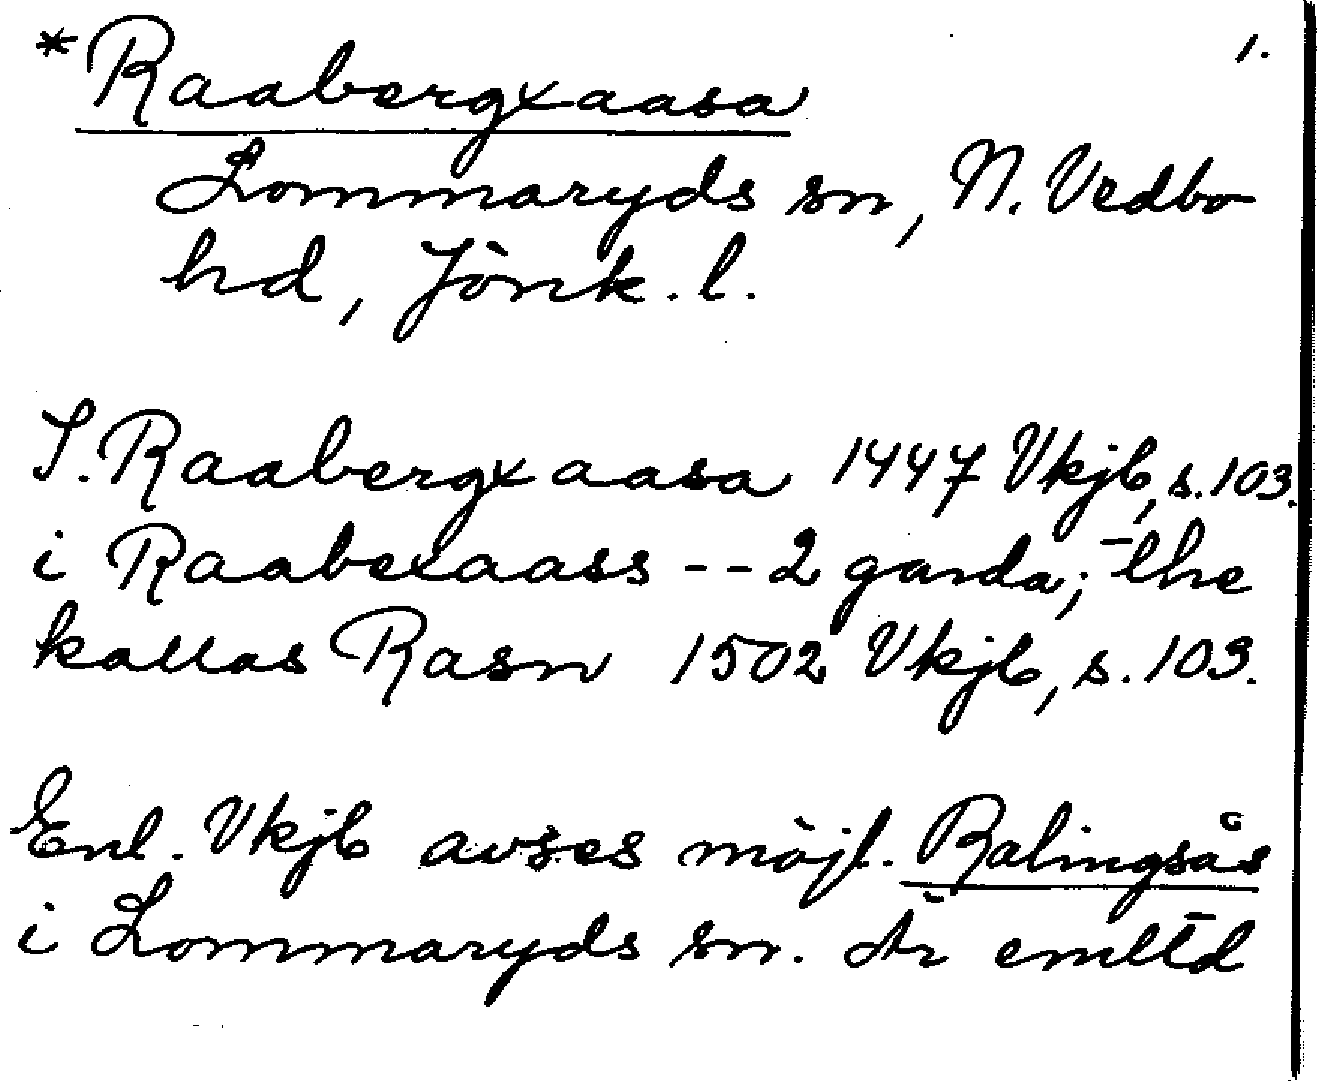 *Raabergxaasa 1.
Lommaryds sn, N. Vedbo
hd, Jönk. l.
I. Raabergxaasa 1447 Vkjb, s. 103.
i Raabexaass -- 2 garda; the
kallas Rasn 1502 Vkjb, s. 103.
Enl. Vkjb avses möjl. Ralingsås
i Lommaryds sn. Är emltd